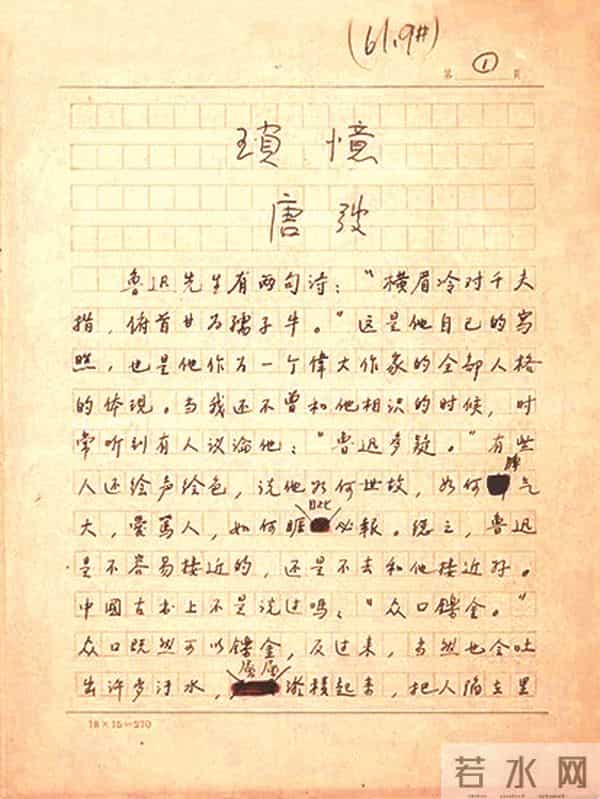 (61.9#)
第 ① 页
瑣憶
唐弢
鲁迅先生有两句诗："横眉冷对千夫
指，俯首甘为孺子牛。"这是他自己的写
照，也是他作为一个偉大作家的全部人格
的体现。当我还不曾和他相识的时候，时
常听到有人议论他："鲁迅多疑。"有些
人还绘声绘色，说他如何世故，如何脾气
大，愛罵人，如何睚眦必報。总之，鲁迅
是不容易接近的，还是不去和他接近好。
中國古书上不是说过吗："众口鑠金。"
众口既然可以鑠金，反过来，当然也会吐
出许多汙水，层层淤積起来，把人陷在里
18×15=270
若水网